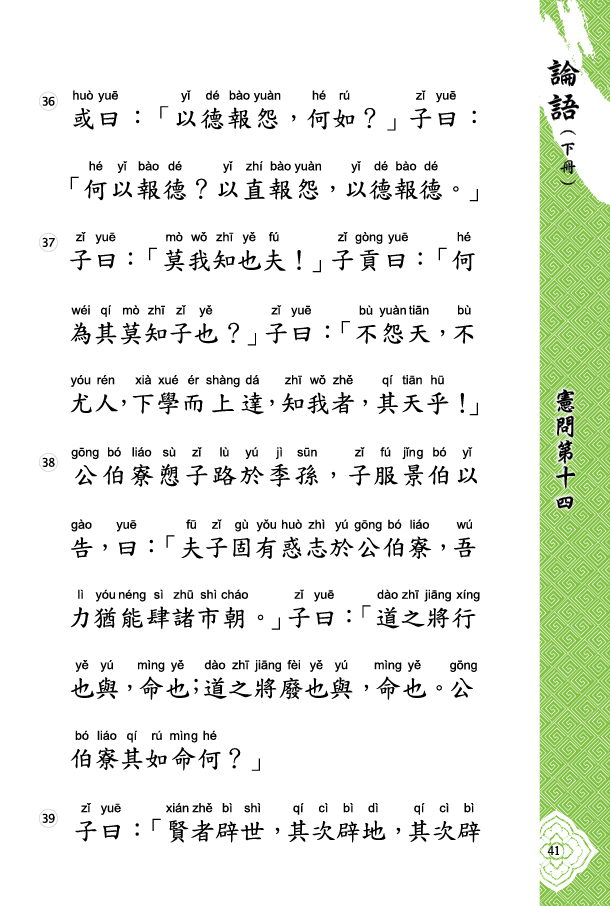 huò yuē yǐ dé bào yuàn hé rú zǐ yuē
36 或曰：「以德報怨，何如？」子曰：
hé yǐ bào dé yǐ zhí bào yuàn yǐ dé bào dé
「何以報德？以直報怨，以德報德。」
zǐ yuē mò wǒ zhī yě fú zǐ gòng yuē hé
37 子曰：「莫我知也夫！」子貢曰：「何
wéi qí mò zhī zǐ yě zǐ yuē bù yuàn tiān bù
為其莫知子也？」子曰：「不怨天，不
yóu rén xià xué ér shàng dá zhī wǒ zhě qí tiān hū
尤人，下學而上達，知我者，其天乎！」
gōng bó liáo sù zǐ lù yú jì sūn zǐ fú jǐng bó yǐ
38 公伯寮愬子路於季孫，子服景伯以
gào yuē fū zǐ gù yǒu huò zhì yú gōng bó liáo wú
告，曰：「夫子固有惑志於公伯寮，吾
lì yóu néng sì zhū shì cháo zǐ yuē dào zhī jiāng xíng
力猶能肆諸市朝。」子曰：「道之將行
yě yú mìng yě dào zhī jiāng fèi yě yú mìng yě gōng
也與，命也；道之將廢也與，命也。公
bó liáo qí rú mìng hé
伯寮其如命何？」
zǐ yuē xián zhě bì shì qí cì bì dì qí cì bì
39 子曰：「賢者辟世，其次辟地，其次辟
論語（下冊）
憲問第十四
41